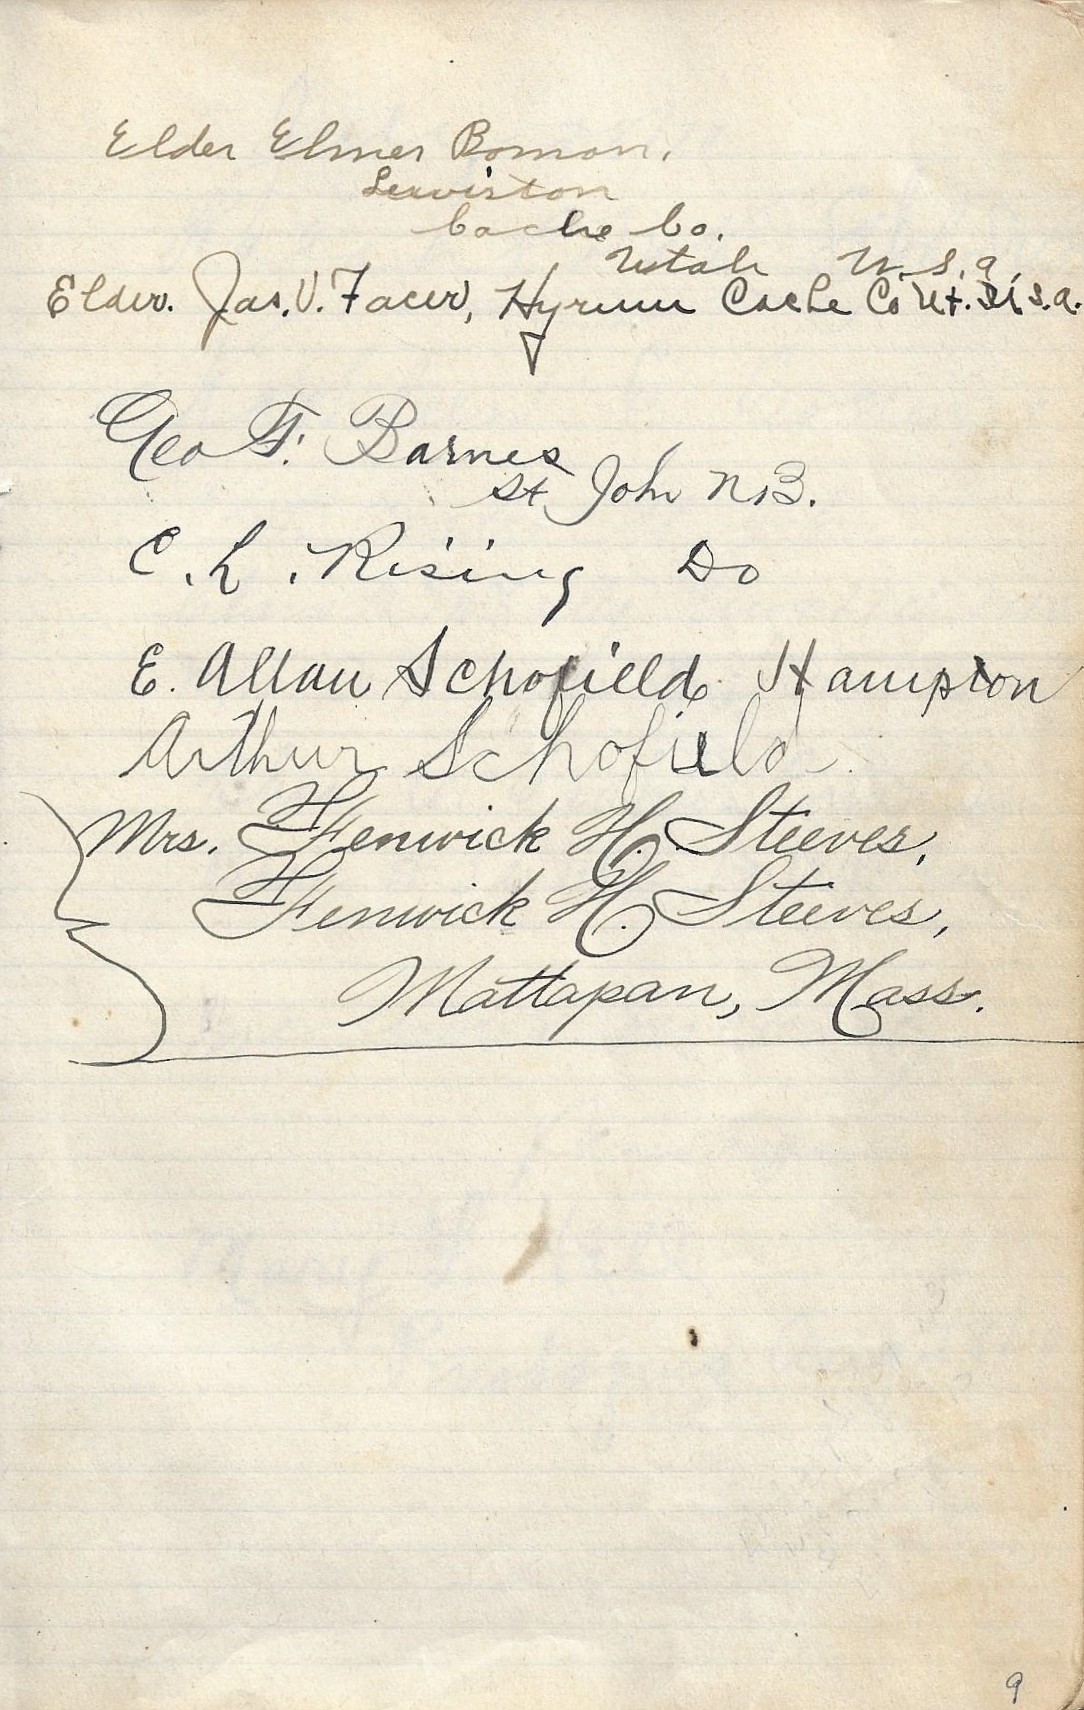 Elder Elmer Boman.
Lewiston
Cache Co.
Utah U.S.A.
Elder. Jas. V. Facer, Hyrum Cache Co Ut. U.S.A.
Geo F. Barnes
St John N.B.
C. L. Rising Do
E. Allan Schofield Hampton
Arthur Schofield
Mrs. Fenwick H. Steeves,
Fenwick H. Steeves,
Mattapan, Mass.
9